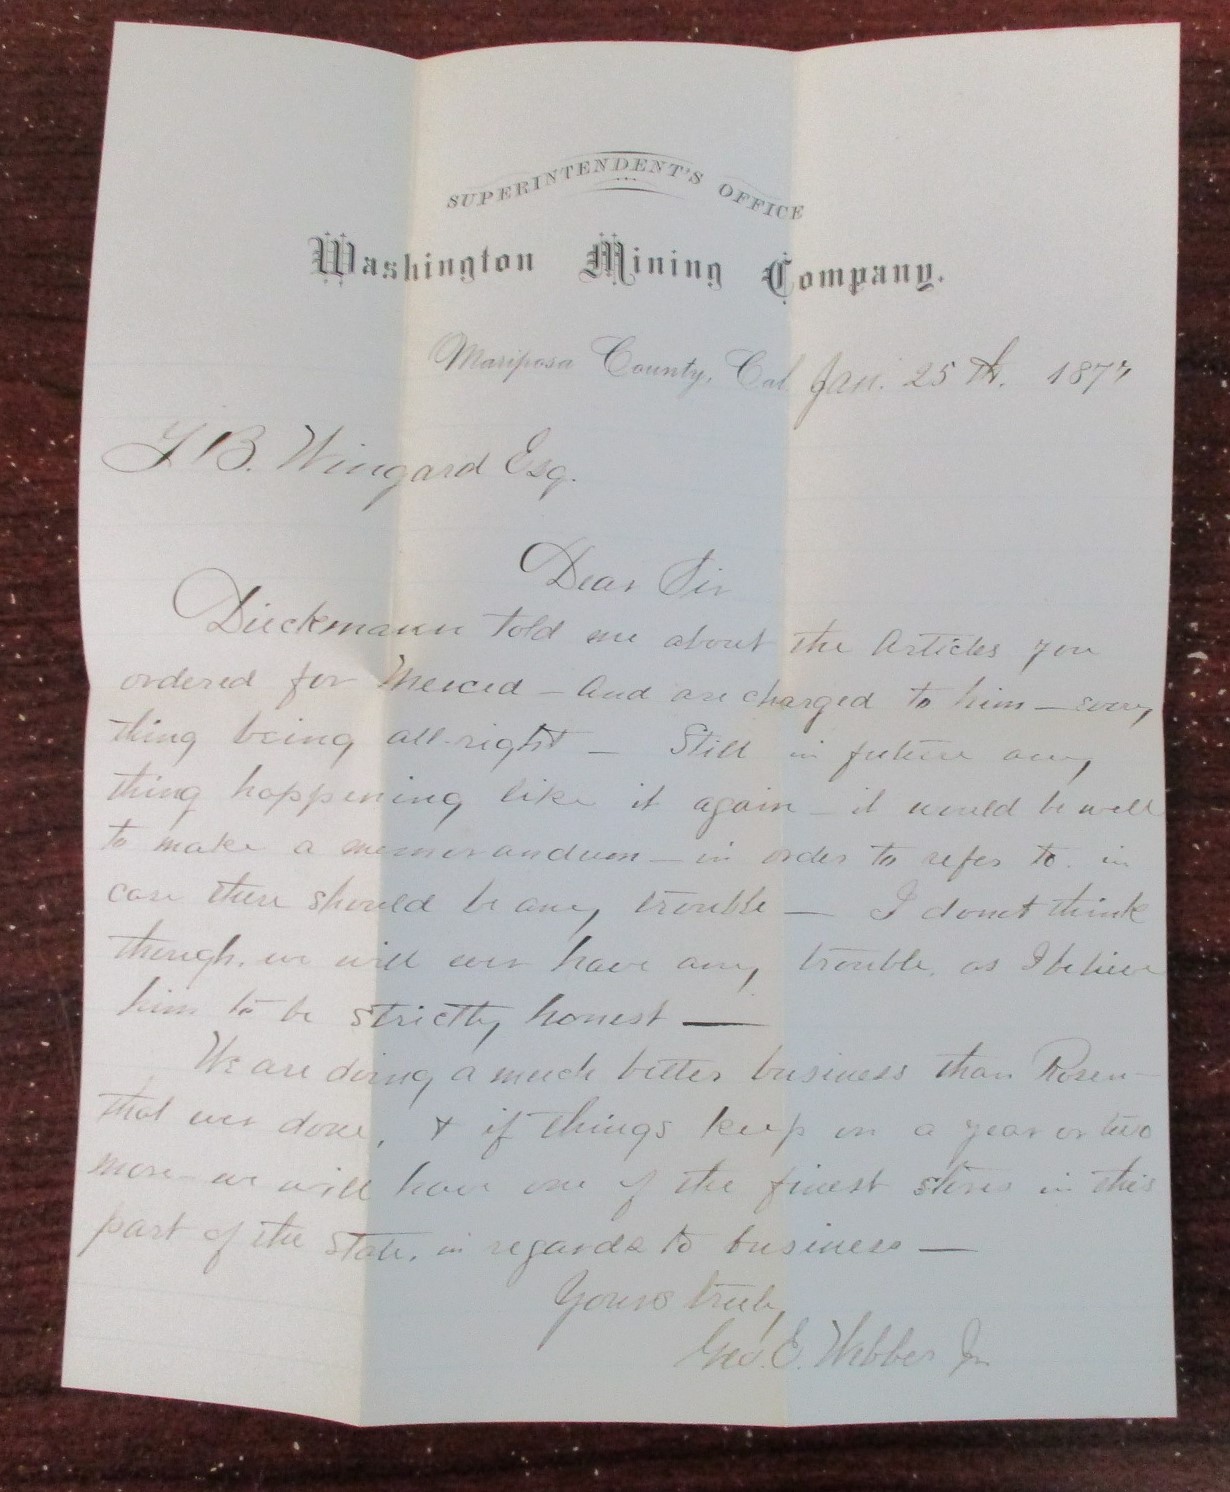 SUPERINTENDENT'S OFFICE
Washington Mining Company.
Mariposa County, Cal Jan. 25th. 1877
B. Wingard Esq.
Dear Sir
Dieckmann told me about the Articles you
ordered for Merced – And are charged to him – every
thing being all-right – Still in future any
thing happening like it again – it would be well
to make a memorandum – in order to refer to. in
case there should be any trouble – I don't think
though, we will ever have any trouble, as I believe
him to be strictly honest —
We are doing a much better business than Rosen-
thal ever done, & if things keep on a year or two
more – we will have one of the finest stores in this
part of the State, in regards to business —
Yours truly
Geo. E. Webber Jr